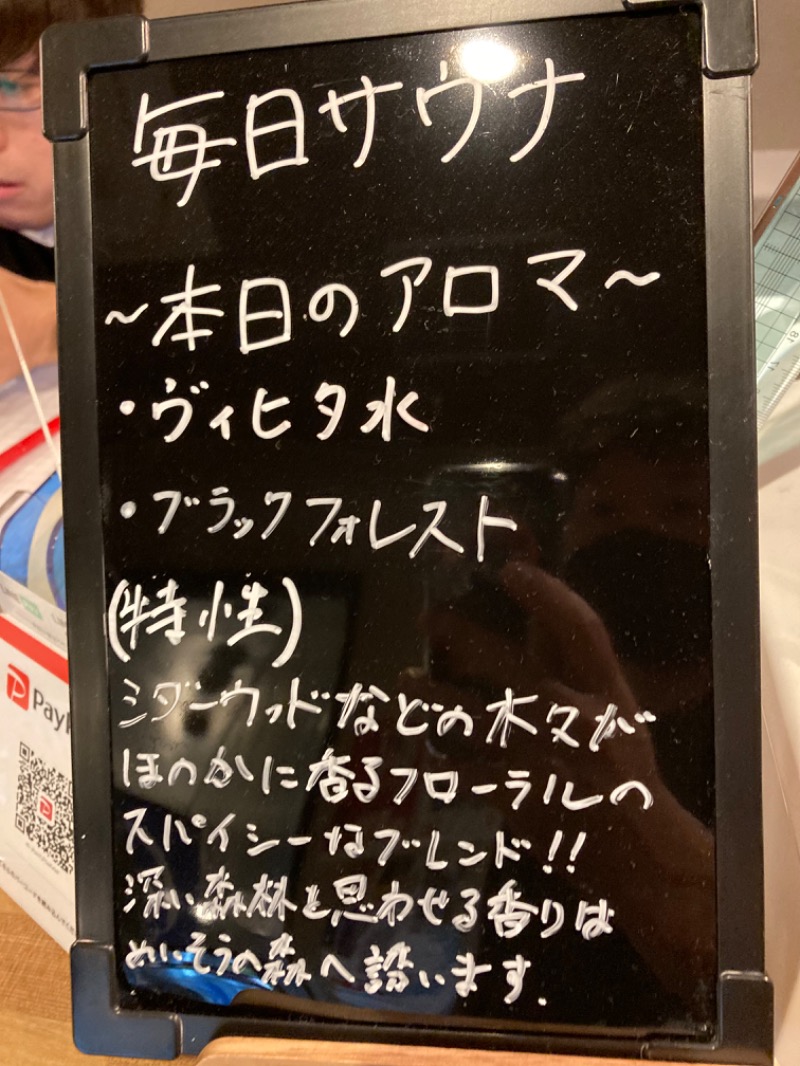 毎日サウナ
~本日のアロマ~
・ヴィヒタ水
・ブラックフォレスト
(特性)
ミダーウッドなどの木々が
ほのかに香るフローラルの
スパイシーなブレンド!!
深い森林を思わせる香りは
めいそうの森へ誘います.
PayP